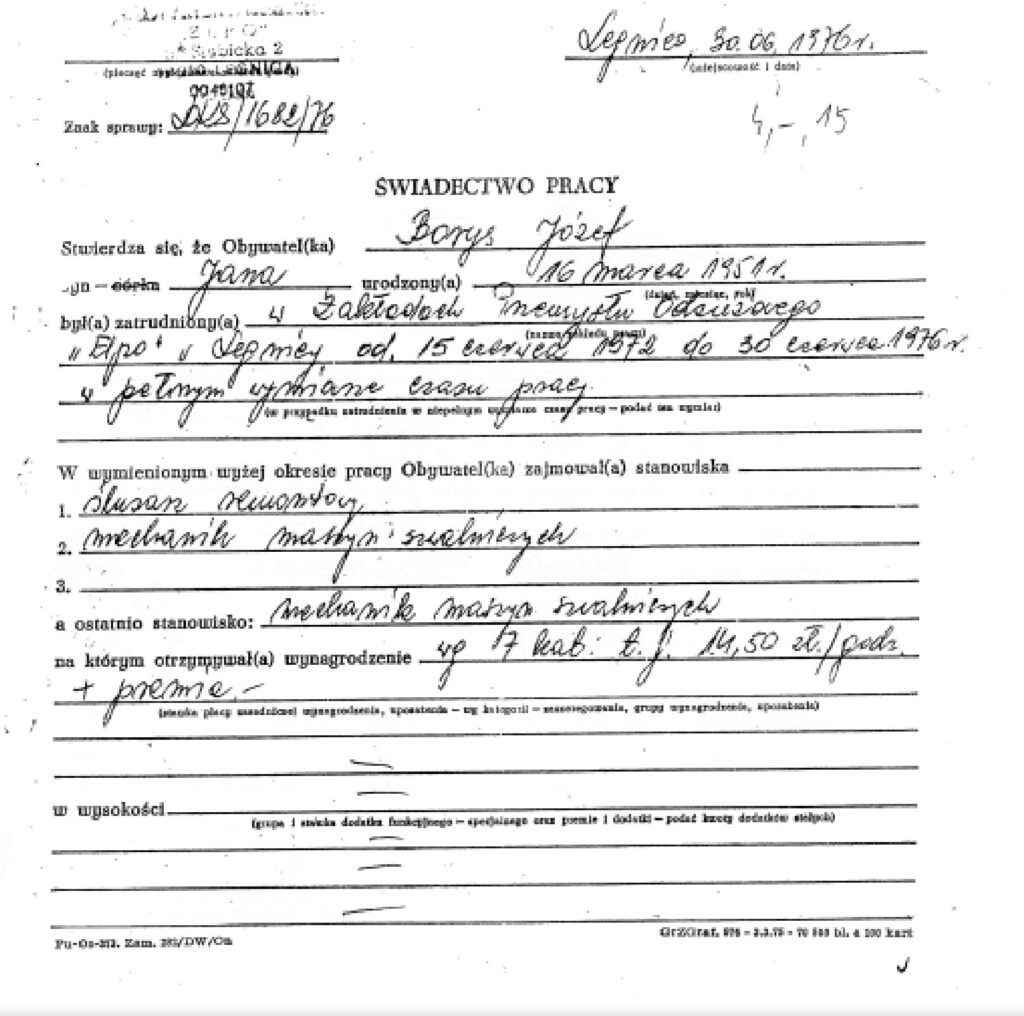 "ELPO"
Słubicka 2
LEGNICA
Legnica, 30.06.1976r.
(miejscowość i data)
Znak sprawy: DKS/1682/76
4,-,15
ŚWIADECTWO PRACY
Stwierdza się, że Obywatel(ka) Borys Józef
syn — córka Jana urodzony(a) 16 marca 1951r.
(dzień, miesiąc, rok)
był(a) zatrudniony(a) w Zakładach Przemysłu Odzieżowego
(nazwa zakładu pracy)
"Elpo" w Legnicy od. 15 czerwca 1972 do 30 czerwca 1976r.
w pełnym wymiarze czasu pracy.
(w przypadku zatrudnienia w niepełnym wymiarze czasu pracy — podać ten wymiar)
W wymienionym wyżej okresie pracy Obywatel(ka) zajmował(a) stanowiska
1. ślusarz remontowy
2. mechanik maszyn szwalniczych
3.
a ostatnio stanowisko: mechanik maszyn szwalniczych
na którym otrzymywał(a) wynagrodzenie wg 7 kat. t.j. 14,50 zł./godz.
+ premia.-
(stawka płacy zasadniczej wynagrodzenia, uposażenia — wg kategorii — zaszeregowania, grupy wynagrodzenia, uposażenia)
w wysokości
(grupa i stawka dodatku funkcyjnego — specjalnego oraz premie i dodatki — podać kwoty dodatków stałych)
Pu-Os-213. Zam. 281/DW/Oa
GrZGraf. 3.3.75 - 70 000 bl. a 100 kart